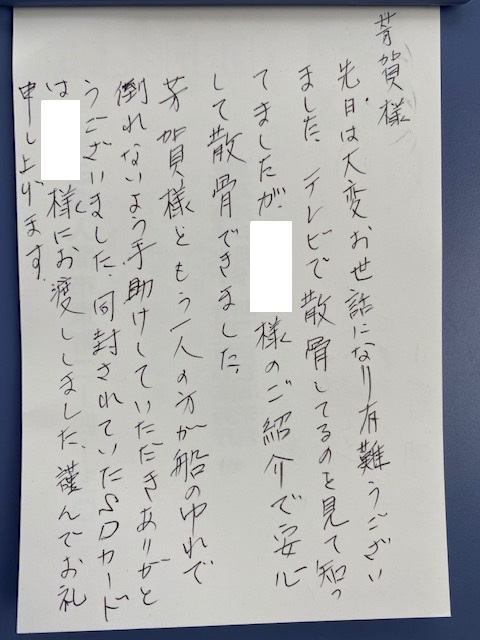 芳賀様
先日は大変お世話になり有難うござい
ました。テレビで散骨してるのを見て知っ
てましたが、様のご紹介で安心
して散骨できました。
芳賀様ともう一人の方が船のゆれで
倒れないよう手助けしていただきありがと
うございました。同封されていたSDカード
は様にお渡ししました。謹んでお礼
申し上げます。